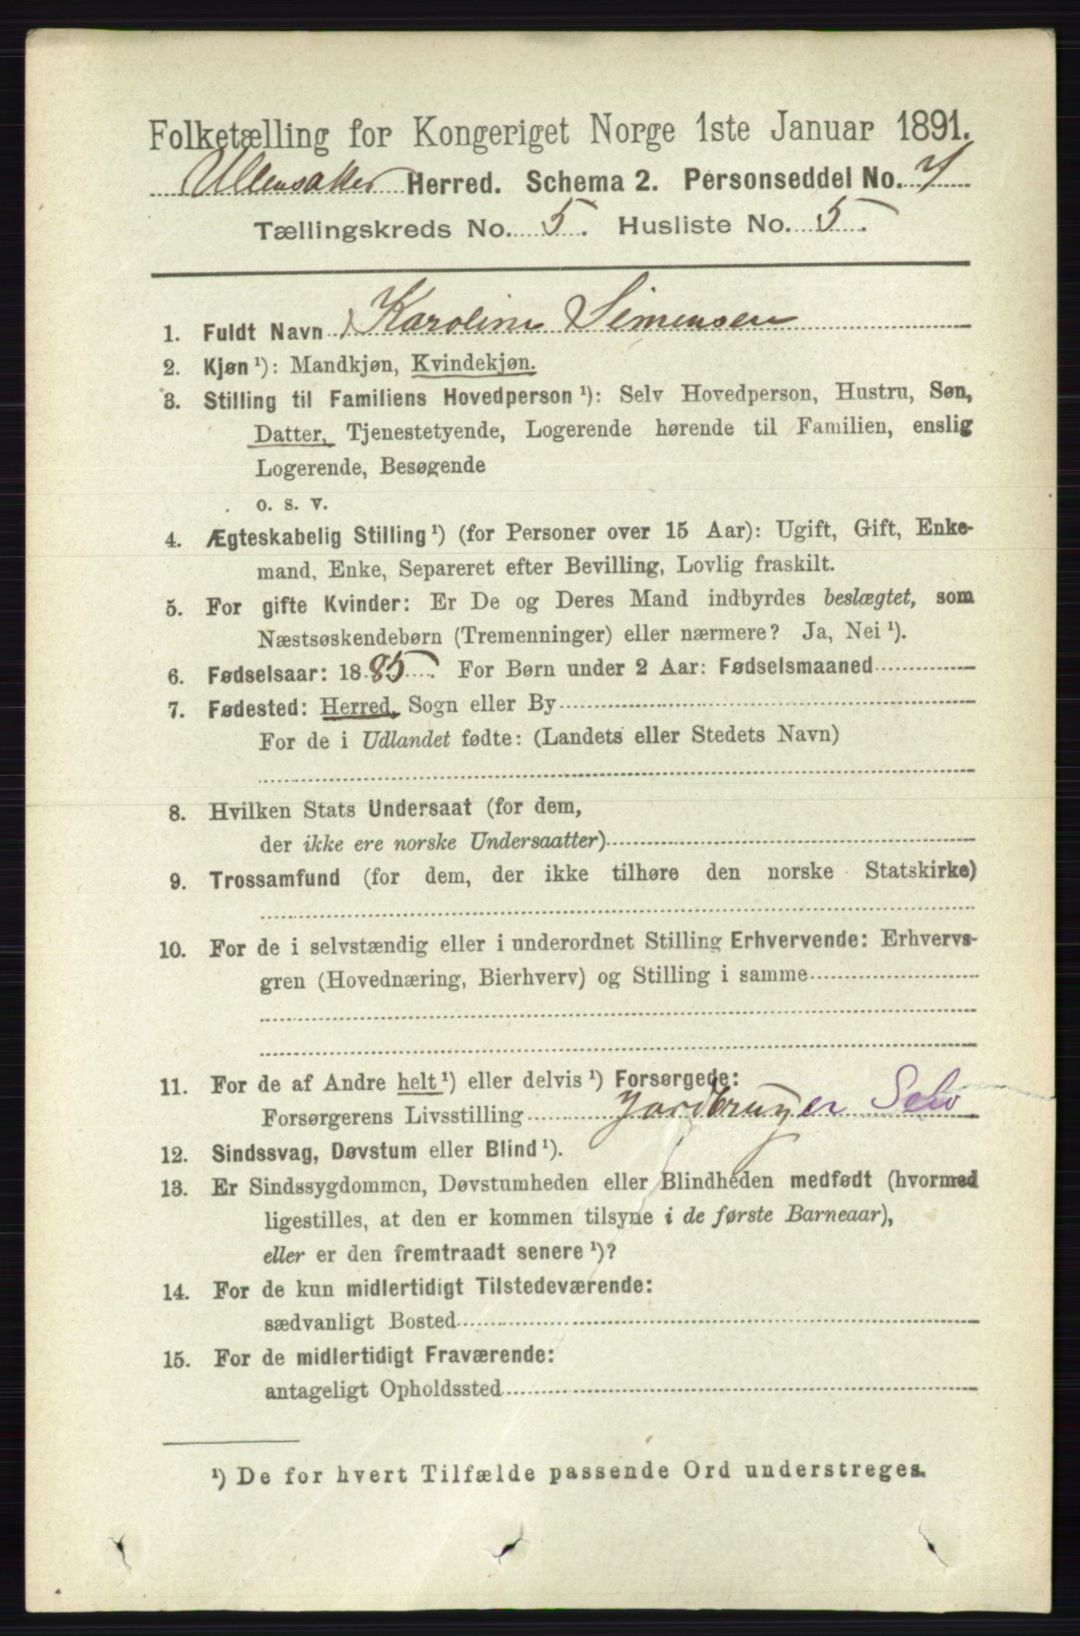 Folketælling for Kongeriget Norge 1ste Januar 1891.
Ullensaker Herred. Schema 2. Personseddel No. 7
Tællingskreds No. 5. Husliste No. 5.
1. Fuldt Navn Karoline Simensen
2. Kjøn ¹): Mandkjøn, Kvindekjøn.
3. Stilling til Familiens Hovedperson ¹): Selv Hovedperson, Hustru, Søn,
Datter, Tjenestetyende, Logerende hørende til Familien, enslig
Logerende, Besøgende
o. s. v.
4. Ægteskabelig Stilling ¹) (for Personer over 15 Aar): Ugift, Gift, Enke-
mand, Enke, Separeret efter Bevilling, Lovlig fraskilt.
5. For gifte Kvinder: Er De og Deres Mand indbyrdes beslægtet, som
Næstsøskendebørn (Tremenninger) eller nærmere? Ja, Nei ¹).
6. Fødselsaar: 1885. For Børn under 2 Aar: Fødselsmaaned
7. Fødested: Herred, Sogn eller By
For de i Udlandet fødte: (Landets eller Stedets Navn)
8. Hvilken Stats Undersaat (for dem,
der ikke ere norske Undersaatter)
9. Trossamfund (for dem, der ikke tilhøre den norske Statskirke)
10. For de i selvstændig eller i underordnet Stilling Erhvervende: Erhvervs-
gren (Hovednæring, Bierhverv) og Stilling i samme
11. For de af Andre helt ¹) eller delvis ¹) Forsørgede:
Forsørgerens Livsstilling Jordbruger Selv
12. Sindssvag, Døvstum eller Blind ¹).
13. Er Sindssygdommen, Døvstumheden eller Blindheden medfødt (hvormed
ligestilles, at den er kommen tilsyne i de første Barneaar),
eller er den fremtraadt senere ¹)?
14. For de kun midlertidigt Tilstedeværende:
sædvanligt Bosted
15. For de midlertidigt Fraværende:
antageligt Opholdssted
¹) De for hvert Tilfælde passende Ord understreges.